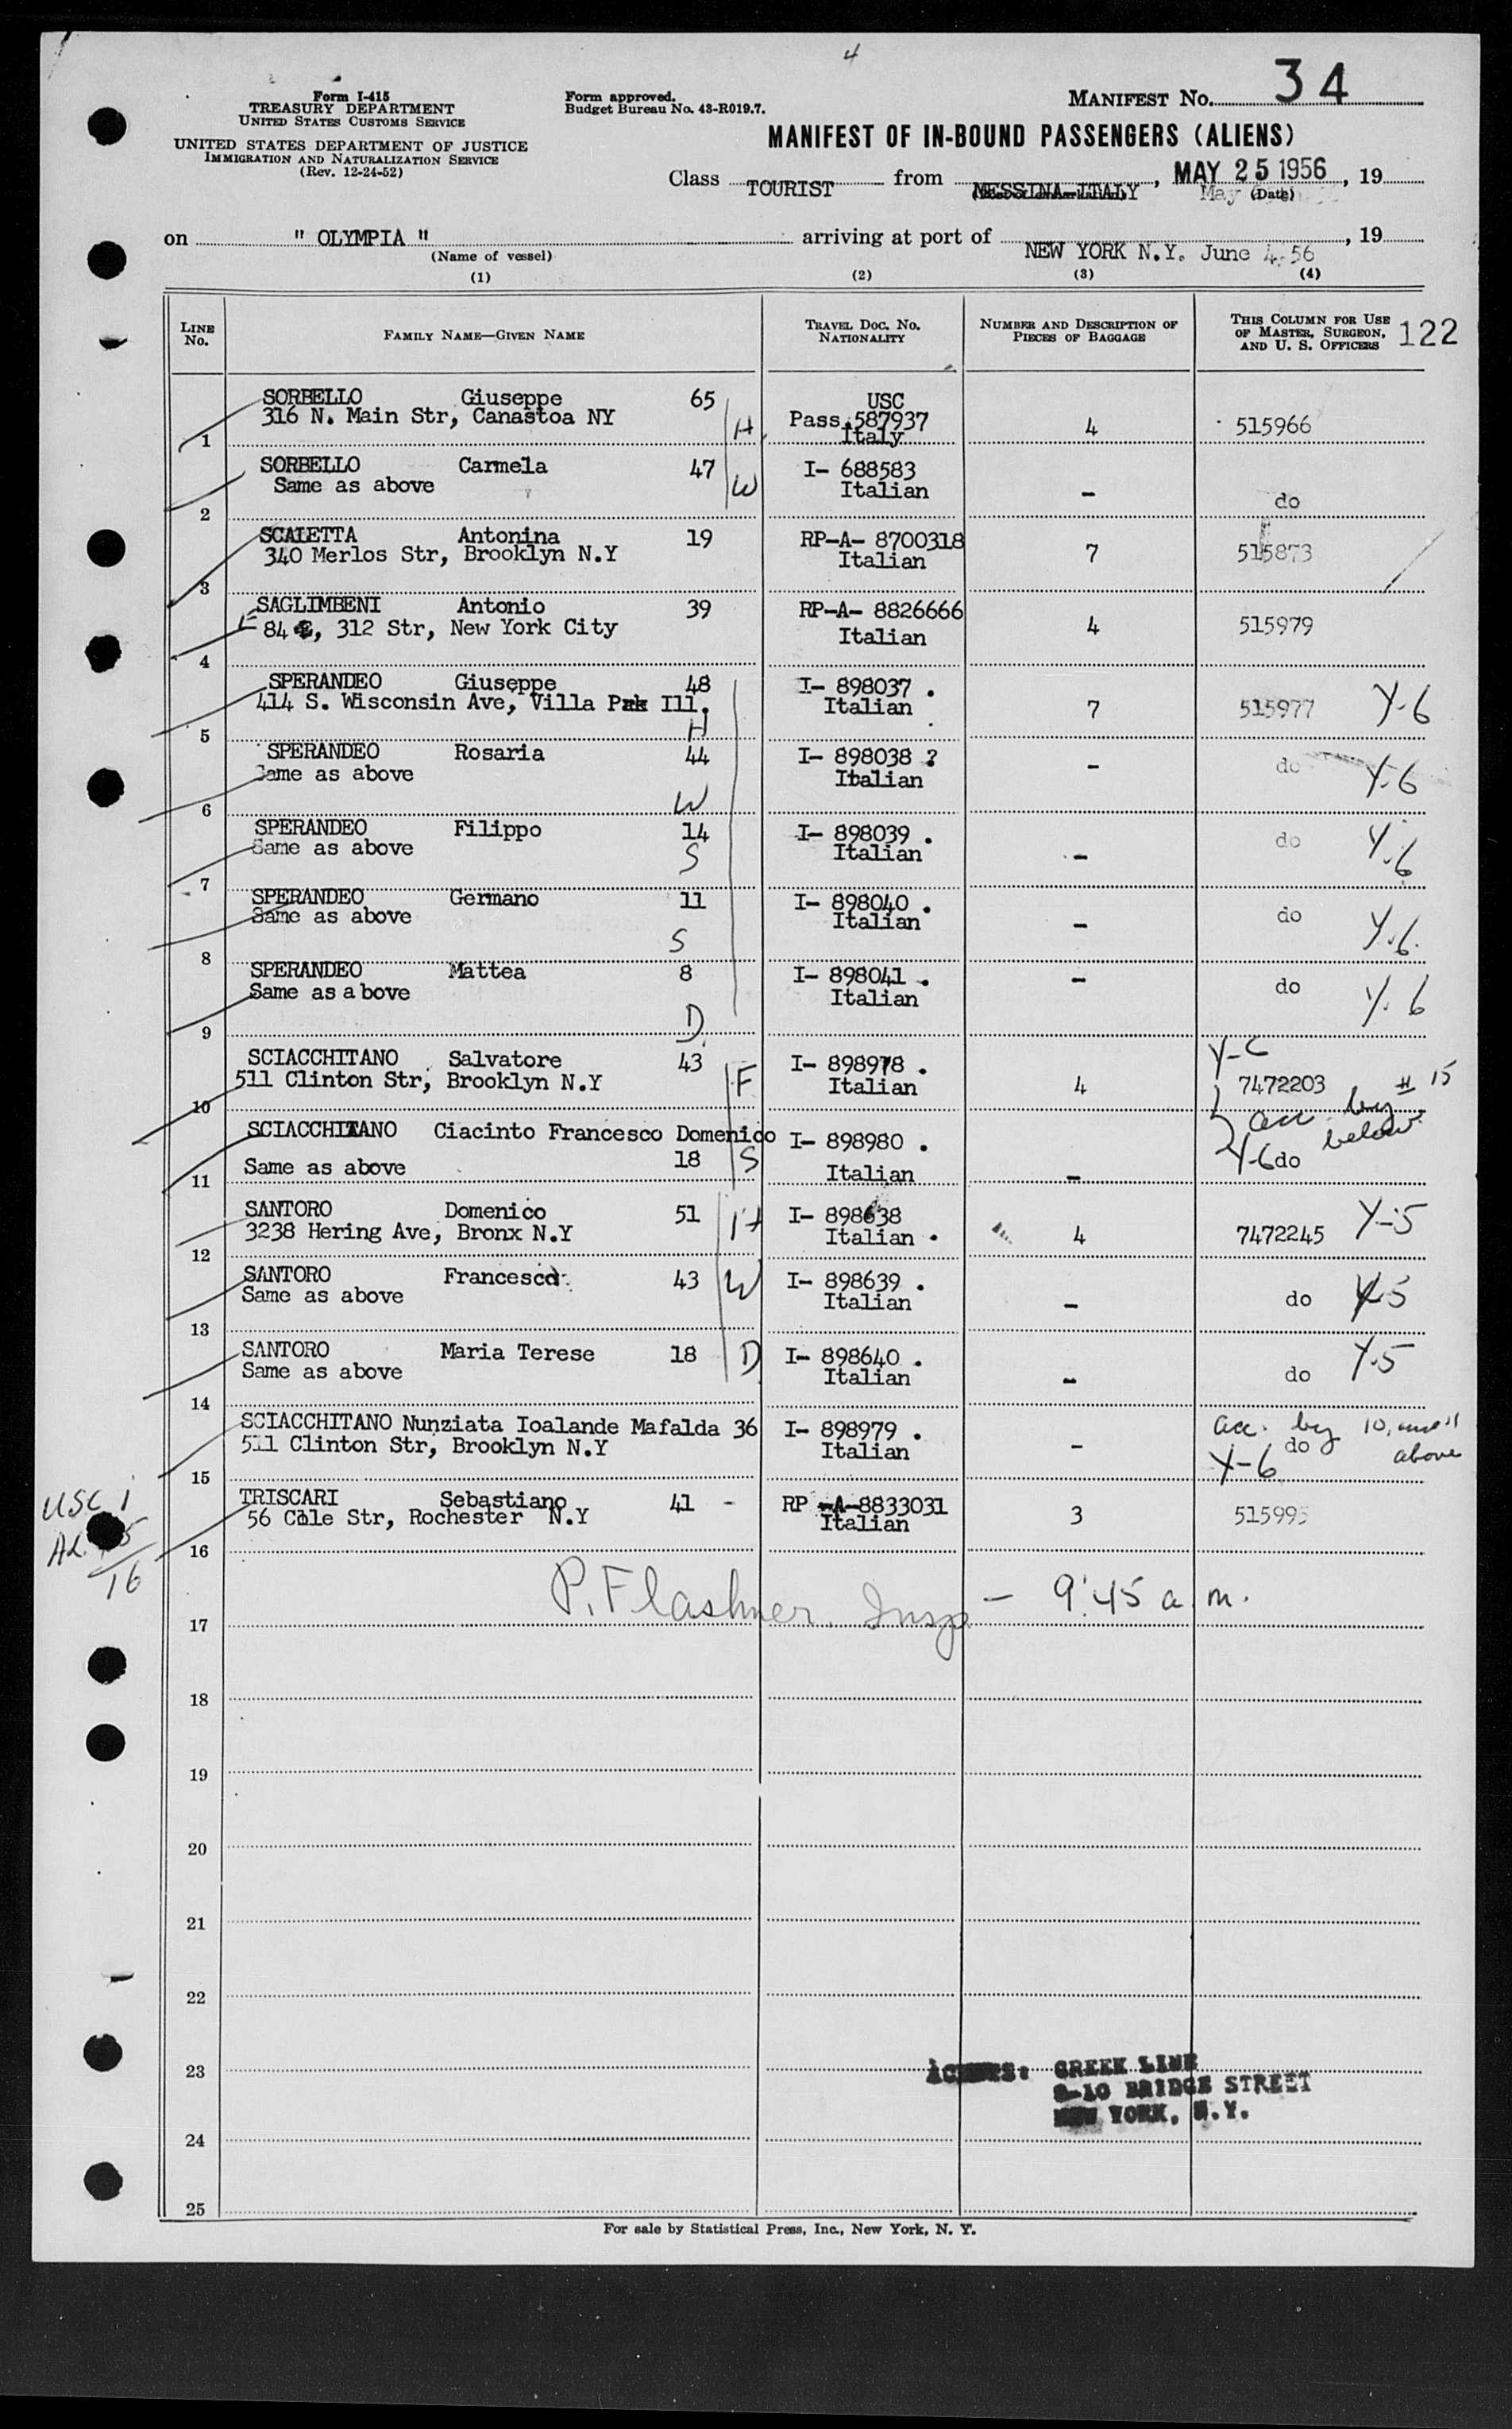 4
Form I-415
TREASURY DEPARTMENT
UNITED STATES CUSTOMS SERVICE
UNITED STATES DEPARTMENT OF JUSTICE
IMMIGRATION AND NATURALIZATION SERVICE
(Rev. 12-24-52)
Form approved.
Budget Bureau No. 43-R019.7.
MANIFEST No. 34
MANIFEST OF IN-BOUND PASSENGERS (ALIENS)
Class TOURIST from MESSINA-ITALY, MAY 25 1956, 19
May (Date)
on " OLYMPIA " arriving at port of NEW YORK N.Y. June 4, 56, 19
(Name of vessel)
(1) (2) (3) (4)
LINE No. FAMILY NAME—GIVEN NAME TRAVEL DOC. NO. NATIONALITY NUMBER AND DESCRIPTION OF PIECES OF BAGGAGE THIS COLUMN FOR USE OF MASTER, SURGEON, AND U. S. OFFICERS 122
SORBELLO Giuseppe 65 USC
316 N. Main Str, Canastoa NY Pass.587937
1 H Italy 4 515966
SORBELLO Carmela 47 I- 688583
Same as above W Italian - do
2
SCALETTA Antonina 19 RP-A- 8700318
340 Merlos Str, Brooklyn N.Y Italian 7 515873
3
SAGLIMBENI Antonio 39 RP-A- 8826666
E 84, 312 Str, New York City Italian 4 515979
4
SPERANDEO Giuseppe 48 I- 898037 .
414 S. Wisconsin Ave, Villa Prk Ill. Italian 7 515977 Y-6
5 H
SPERANDEO Rosaria 44 I- 898038 ?
Same as above Italian - do Y-6
6 W
SPERANDEO Filippo 14 I- 898039 .
Same as above S Italian - do Y-6
7
SPERANDEO Germano 11 I- 898040 .
Same as above Italian - do Y-6.
8 S
SPERANDEO Mattea 8 I- 898041 .
Same as above Italian - do Y-6
9 D
SCIACCHITANO Salvatore 43 I- 898978 . Y-6
511 Clinton Str, Brooklyn N.Y F Italian 4 7472203
10 acc. by # 15 below
SCIACCHITANO Ciacinto Francesco Domenico I- 898980 .
Same as above 18 S Italian - Y-6 do
11
SANTORO Domenico 51 H I- 898638
3238 Hering Ave, Bronx N.Y Italian . 4 7472245 Y-5
12
SANTORO Francesca 43 W I- 898639 .
Same as above Italian - do Y-5
13
SANTORO Maria Terese 18 D I- 898640 .
Same as above Italian - do Y-5
14
SCIACCHITANO Nunziata Ioalande Mafalda 36 I- 898979 . acc. by 10, and 11 above
511 Clinton Str, Brooklyn N.Y Italian - do
15 Y-6
USC 1
TRISCARI Sebastiano 41 - RP -A-8833031
56 Cole Str, Rochester N.Y Italian 3 515995
AL. 15
16
16
P. Flashner. Insp - 9:45 a.m.
17
18
19
20
21
22
23 GREEK LINE
8-10 BRIDGE STREET
NEW YORK, N.Y.
24
25
For sale by Statistical Press, Inc., New York, N. Y.